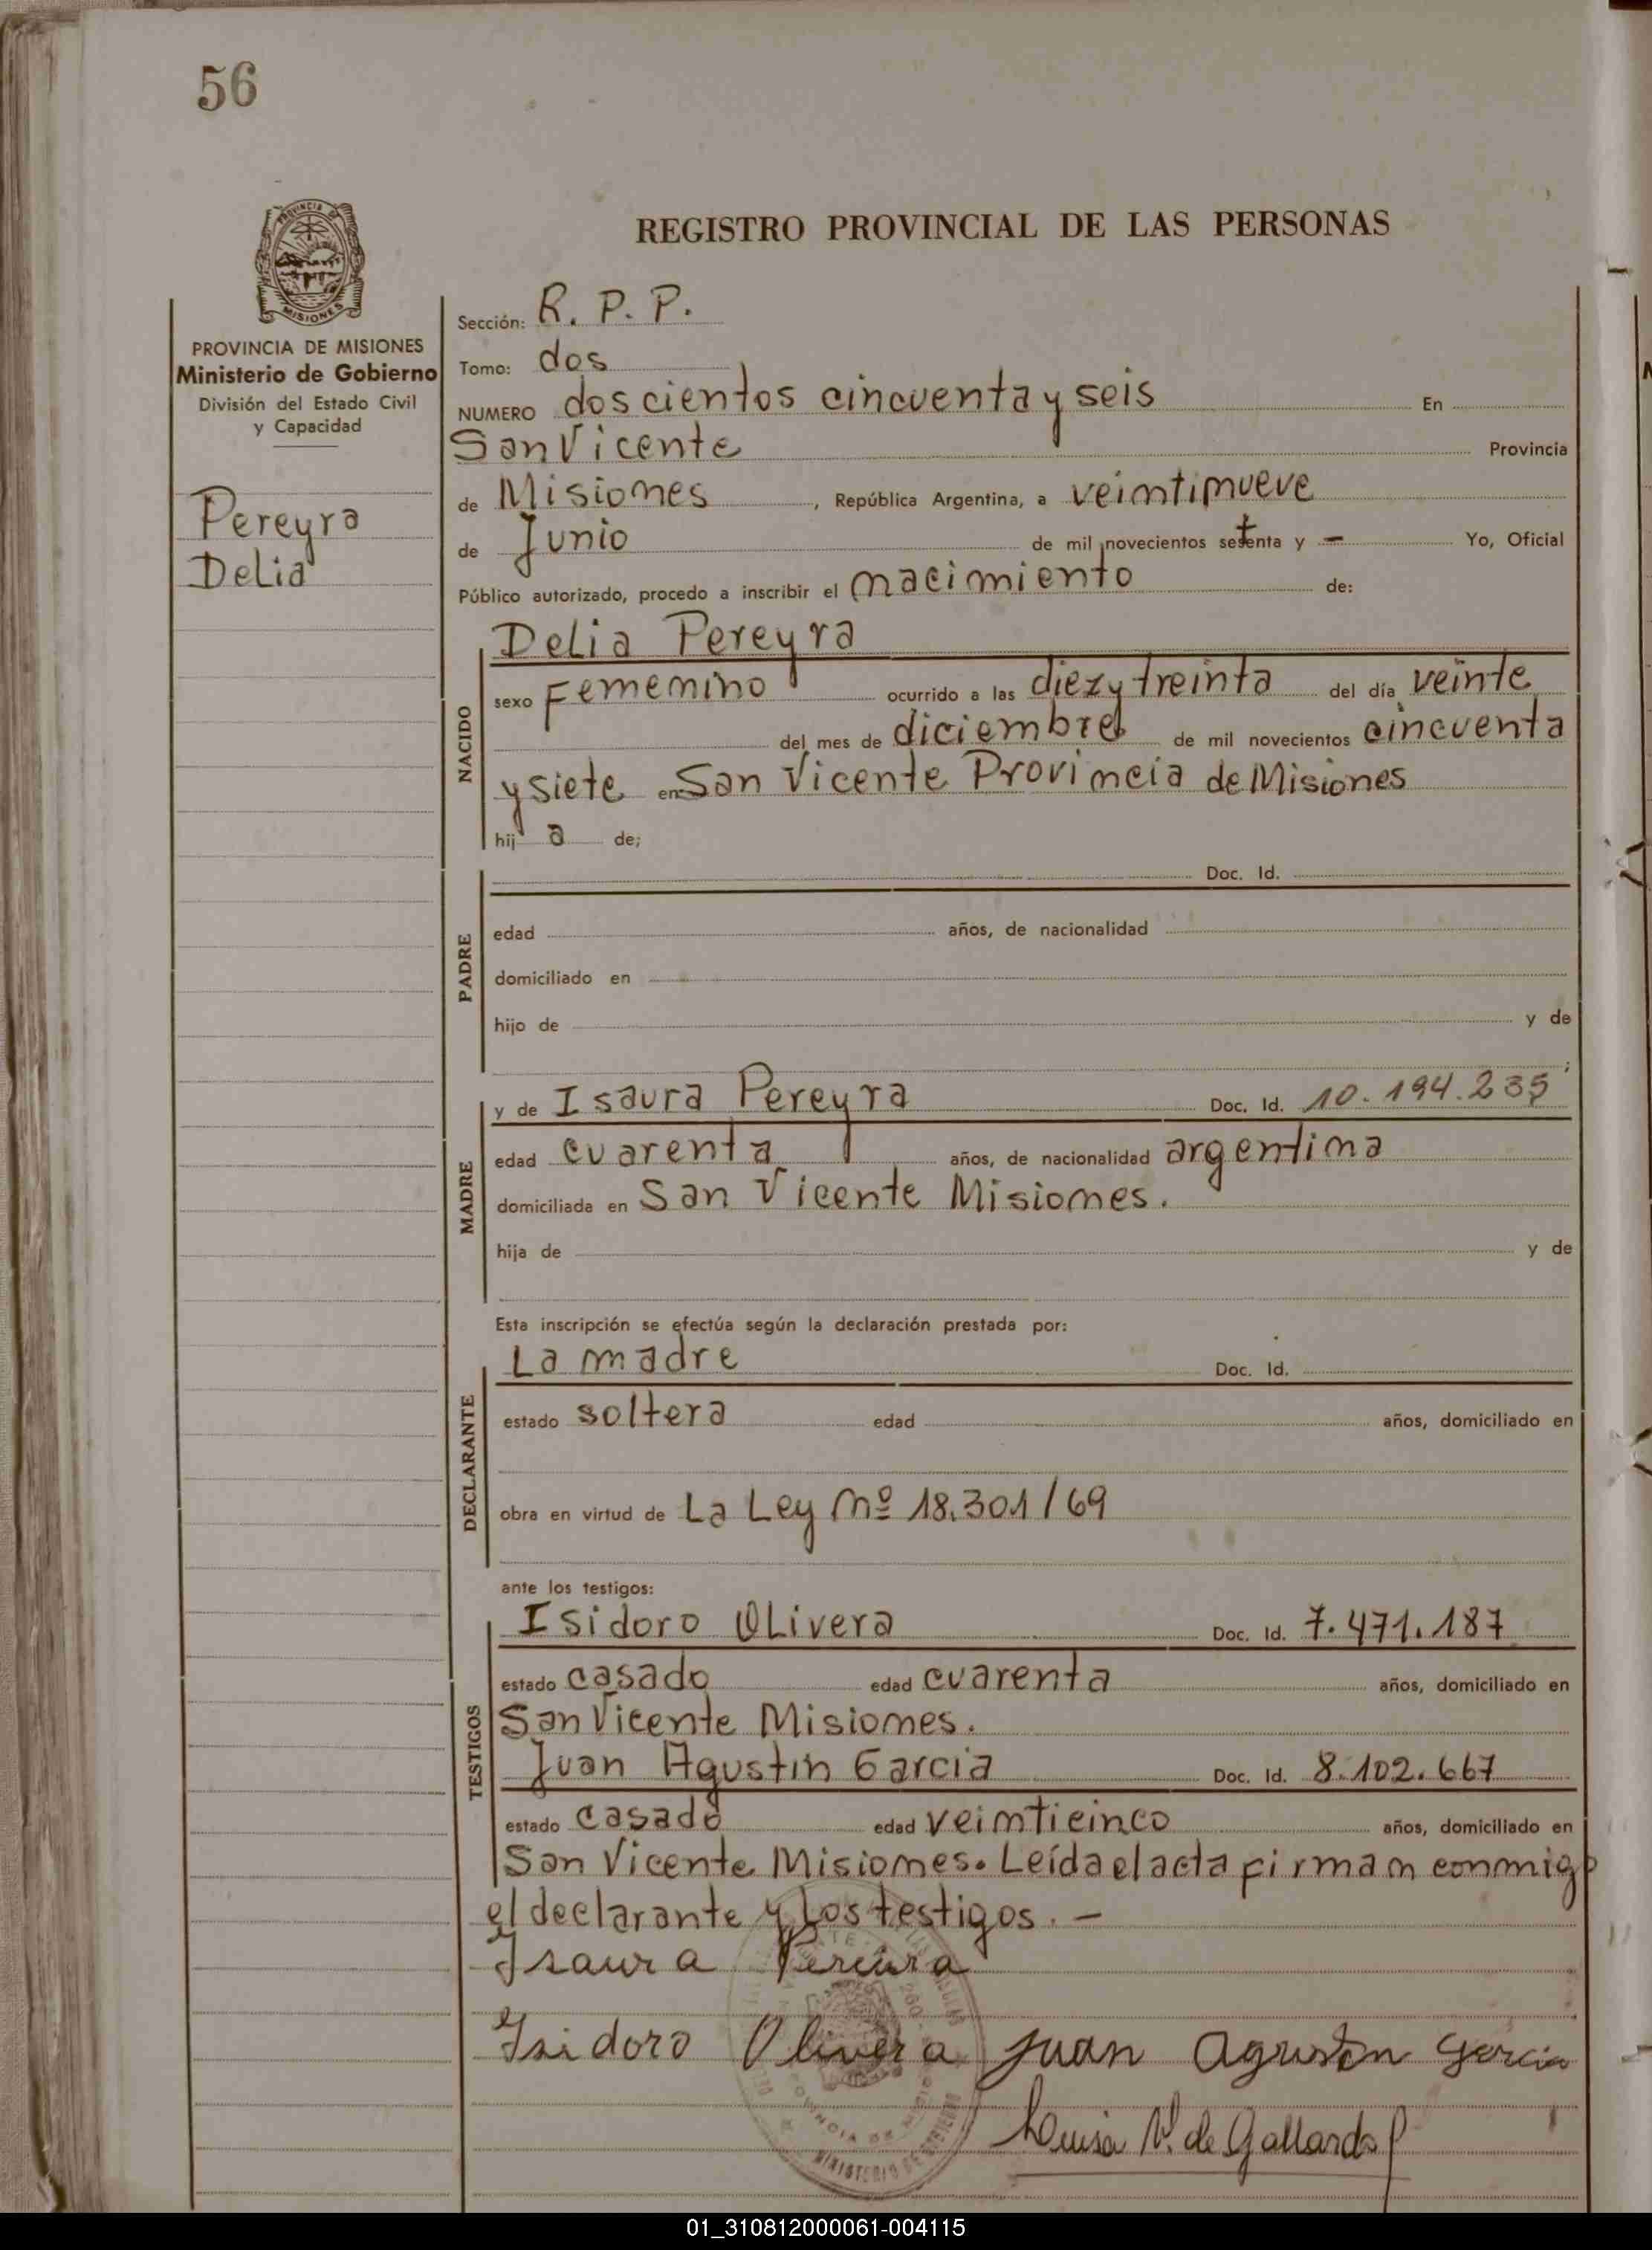 56
REGISTRO PROVINCIAL DE LAS PERSONAS
PROVINCIA DE MISIONES
Ministerio de Gobierno
División del Estado Civil
y Capacidad
Pereyra
Delia
Sección: R. P. P.
Tomo: dos
NUMERO doscientos cincuenta y seis En
San Vicente Provincia
de Misiones, República Argentina, a veintinueve
de Junio de mil novecientos setenta y — Yo, Oficial
Público autorizado, procedo a inscribir el nacimiento de:
NACIDO
Delia Pereyra
sexo Femenino ocurrido a las diez y treinta del día veinte
del mes de diciembre de mil novecientos cincuenta
y siete en San Vicente Provincia de Misiones
hij a de;
PADRE
Doc. Id.
edad años, de nacionalidad
domiciliado en
hijo de y de
MADRE
y de Isaura Pereyra Doc. Id. 10.194.235
edad cuarenta años, de nacionalidad argentina
domiciliada en San Vicente Misiones.
hija de y de
Esta inscripción se efectúa según la declaración prestada por:
DECLARANTE
La madre Doc. Id.
estado soltera edad años, domiciliado en
obra en virtud de La Ley Nº 18.301/69
ante los testigos:
TESTIGOS
Isidoro Olivera Doc. Id. 7.471.187
estado casado edad cuarenta años, domiciliado en
San Vicente Misiones.
Juan Agustin Garcia Doc. Id. 8.102.667
estado casado edad veinticinco años, domiciliado en
San Vicente Misiones. Leída el acta firman conmigo
el declarante y los testigos. —
Isaura Pereira
Isidoro Olivera Juan Agustin Garcia
Luisa N. de Gallardo
MINISTERIO DE GOBIERNO
01_310812000061-004115